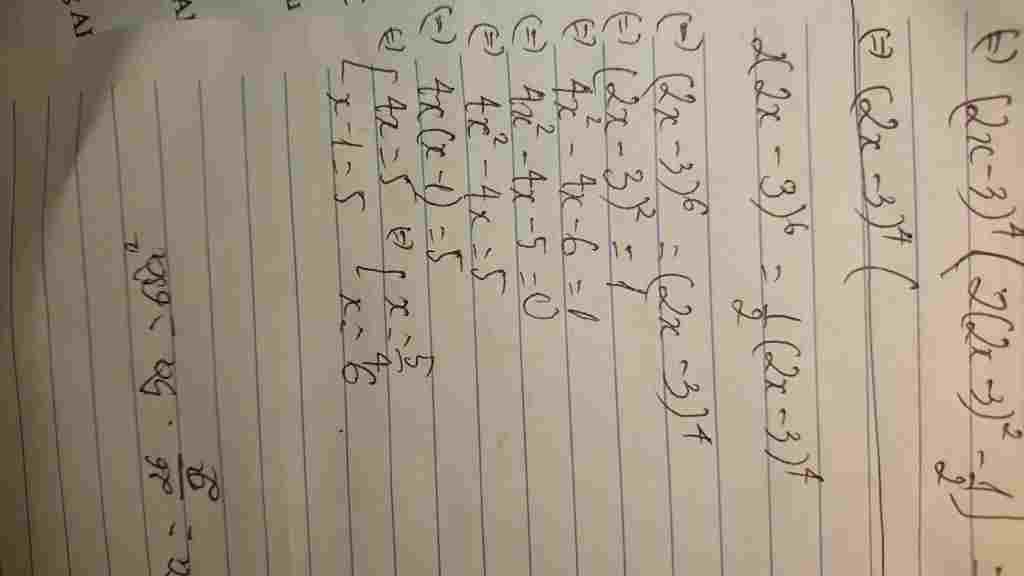 (=) (2x-3)⁴ (2(2x-3)² - 1/2)
(=) (2x-3)⁴ (
2(2x-3)⁶ = 1/2 (2x-3)⁴
(=) (2x-3)⁶ = (2x-3)⁴
(=) (2x-3)² = 1
(=) 4x² - 4x - 6 = 1
(=) 4x² - 4x - 5 = 0
(=) 4x² - 4x = 5
(=) 4x(x-1) = 5
(=) [ 4x = 5 (=) [ x = 5/4
[ x - 1 = 5 [ x = 6